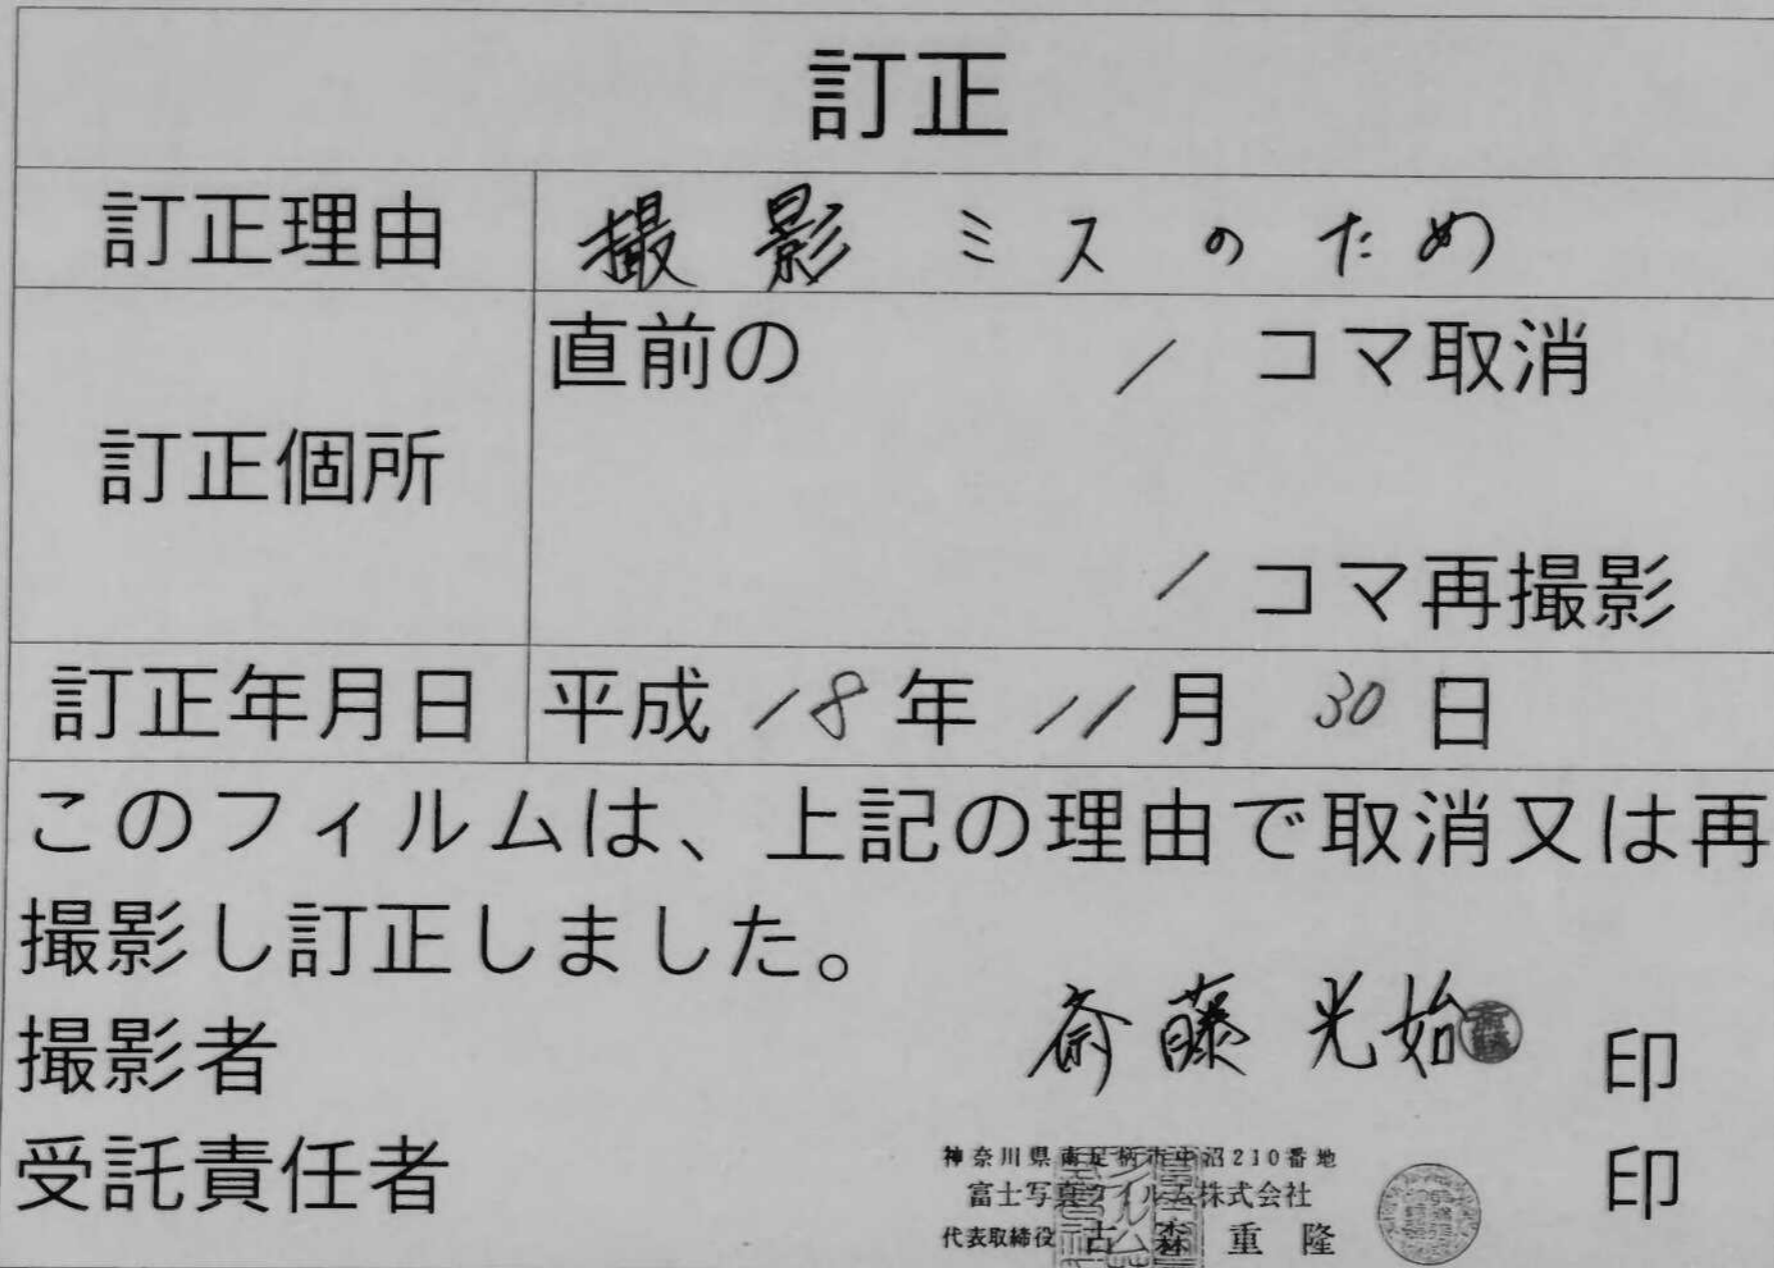 訂正
訂正理由 撮影ミスのため
訂正個所 直前の 1 コマ取消
1 コマ再撮影
訂正年月日 平成 18 年 11 月 30 日
このフィルムは、上記の理由で取消又は再
撮影し訂正しました。
撮影者 斎藤 光始 印
受託責任者 印
神奈川県南足柄市中沼210番地
富士写真フイルム株式会社
代表取締役 古森重隆